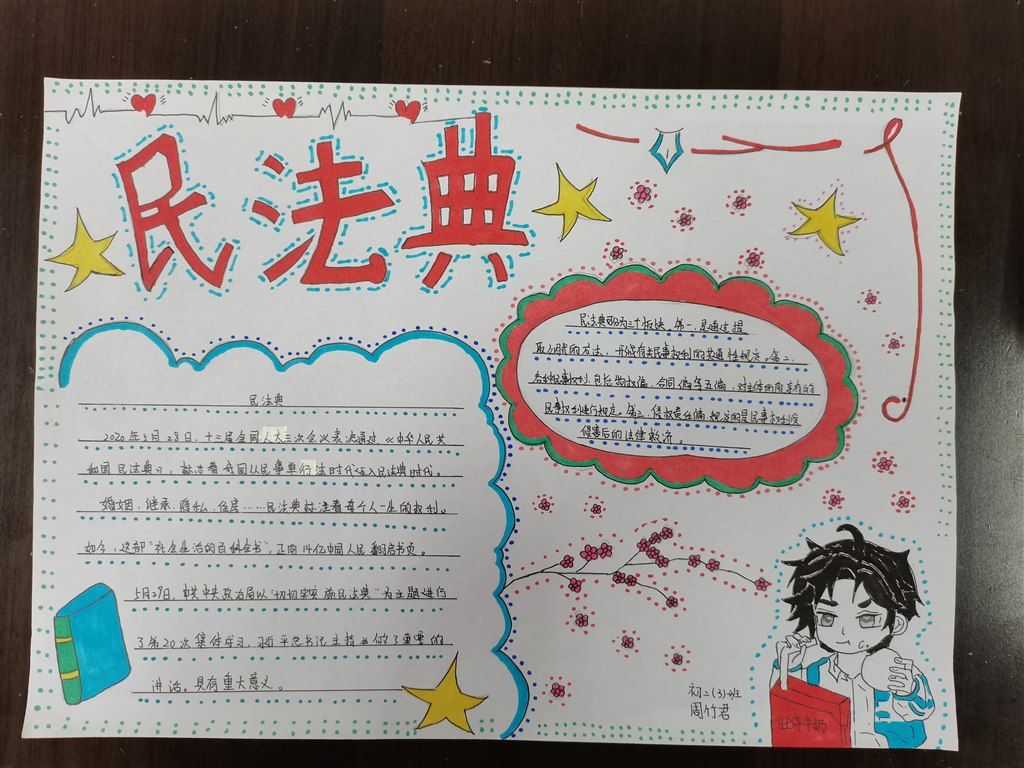 民法典
民法典可分为三个板块，第一，是通过提
取公因式的方法，形成有关民事权利的共通性规定。第二，
各种民事权利，包括物权编，合同编等五编，对主体所享有的
民事权利进行规定。第三，侵权责任编，规定的是民事权利受
侵害后的法律救济。
民法典
2020年5月28日，十三届全国人大三次会议表决通过《中华人民共
和国民法典》，标志着我国从民事单行法时代迈入民法典时代。
婚姻，继承，隐私，住房……民法典标注着每个人一生的权利。
如今，这部“社会生活的百科全书”，正向14亿中国人民翻启书页。
5月29日，中共中央政治局以“切切实实施民法典”为主题进行
了第20次集体学习，习近平总书记主持并做了重要的
讲话。具有重大意义。
初二（3）班
周竹君
旺仔牛奶